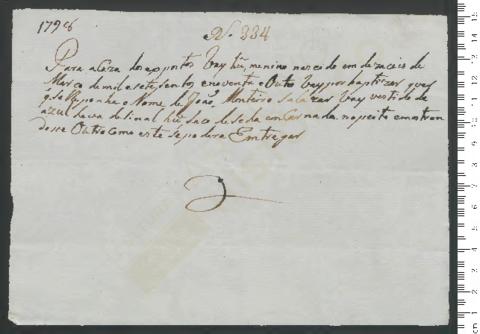 1798
N. 334
Para a Caza dos expostos Vay hũ menino nascido em dezaceis de
Março de mil e sete sentos e noventa e Outo Vay por baptizar quer
q se lhe ponha o Nome de João Monteiro Salazar Vay vestido de
azul Leva de sinal hũ saco de seda em Car nada no peito e mostran
do se Outro Como este se podera Entregar